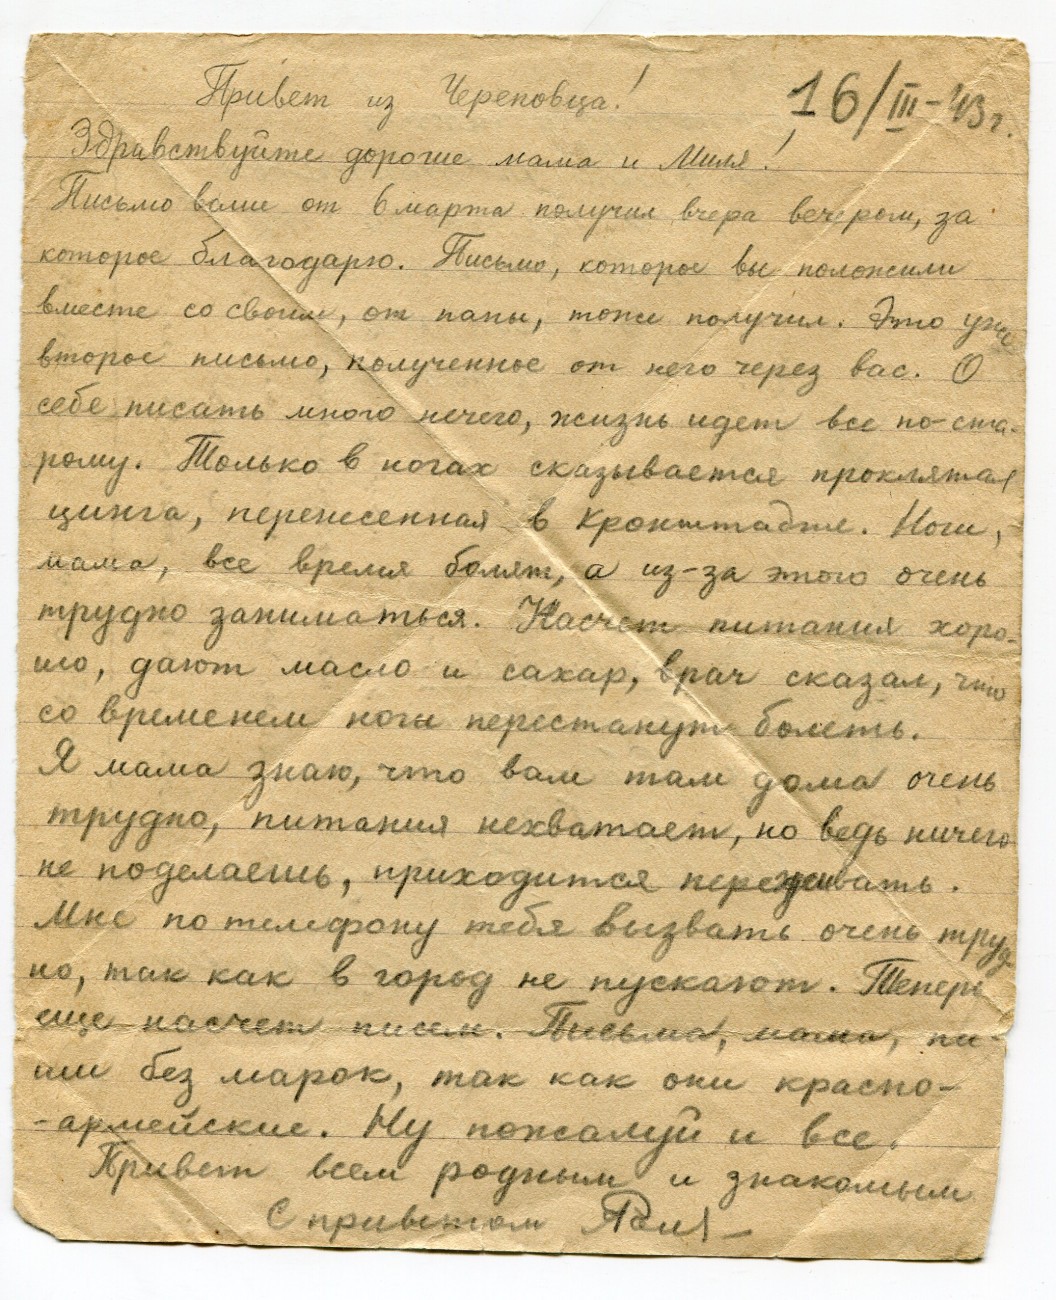 Привет из Череповца! 16/III-43г.
Здравствуйте дорогие мама и Миля!
Письмо ваше от 6 марта получил вчера вечером, за
которое благодарю. Письмо, которое вы положили
вместе со своим, от папы, тоже получил. Это уже
второе письмо, полученное от него через вас. О
себе писать много нечего, жизнь идет все по-ста-
рому. Только в ногах сказывается проклятая
цинга, перенесенная в Кронштадте. Ноги,
мама, все время болят, а из-за этого очень
трудно заниматься. Насчет питания хоро-
шо, дают масло и сахар, врач сказал, что
со временем ноги перестанут болеть.
Я мама знаю, что вам там дома очень
трудно, питания нехватает, но ведь ничего
не поделаешь, приходится переживать.
Мне по телефону тебя вызвать очень труд
но, так как в город не пускают. Теперь
еще насчет писем. Письма, мама, пи-
ши без марок, так как они красно-
-армейские. Ну пожалуй и все.
Привет всем родным и знакомым
С приветом